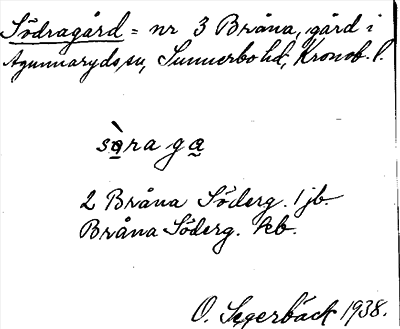 Södragård = nr 3 Bråna, gård i
Agunnaryds sn, Sunnerbo hd, Kronob. l.
sàraga
2 Bråna Söderg. 1 jb.
Bråna Söderg. kb.
O. Segerbäck 1938.